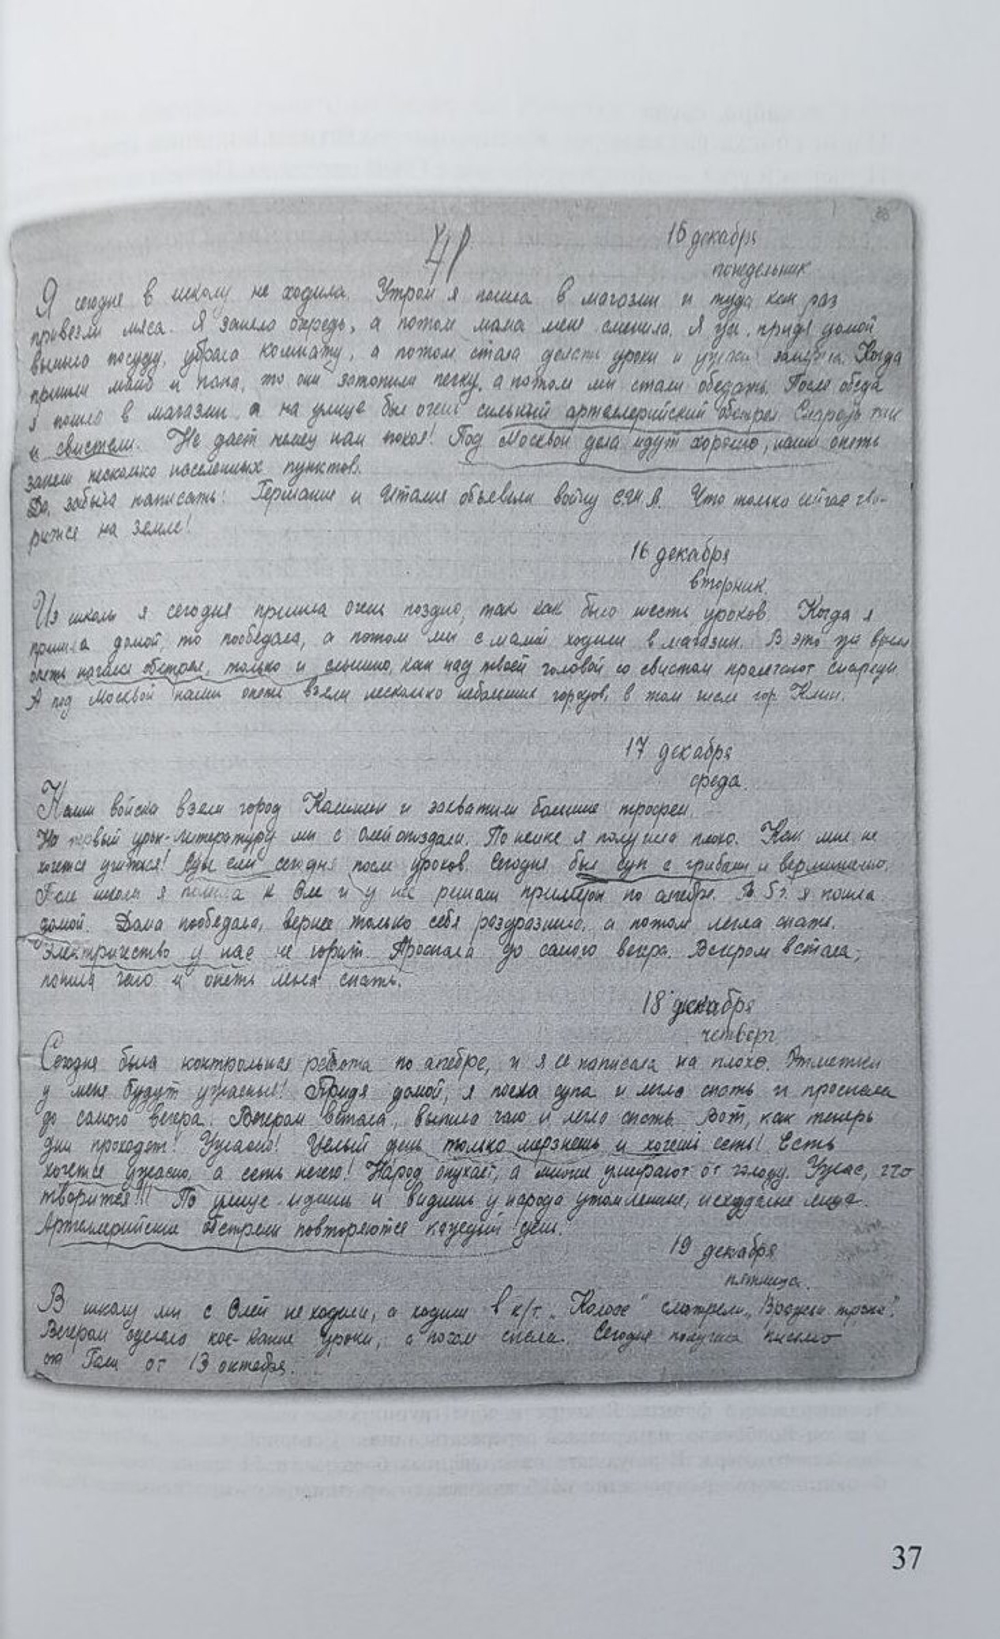 15 декабря
понедельник
Я сегодня в школу не ходила. Утром я пошла в магазин и туда как раз
привезли мяса. Я заняла очередь, а потом мама меня сменила. Я уж, придя домой
вымыла посуду, убрала комнату, а потом стала делать уроки и ужасно замерзла. Когда
пришли мама и папа, то они затопили печку, а потом мы стали обедать. После обеда
я пошла в магазин, а на улице был очень сильный артиллерийский обстрел. Снаряды так
и свистели. Не дает немец нам покоя! Под Москвой дела идут хорошо, наши опять
заняли несколько населенных пунктов.
Да, забыла написать: Германия и Италия объявили войну С.Ш.А. Что только сейчас тво-
рится на земле!
16 декабря
вторник.
Из школы я сегодня пришла очень поздно, так как было шесть уроков. Когда я
пришла домой, то пообедала, а потом мы с мамой ходили в магазин. В это же время
опять начался обстрел, только и слышно, как над твоей головой со свистом пролетают снаряды.
А под Москвой наши опять взяли несколько небольших городов, в том числе гор. Клин.
17 декабря
среда.
Наши войска взяли город Калинин и захватили большие трофеи.
На первый урок-литературу мы с Олей опоздали. По химии я получила плохо. Как мне не
хочется учиться! Суп ели сегодня после уроков. Сегодня был суп с грибами и вермишелью.
После школы я пошла к Оле и у нее решали примеры по алгебре. В 5 ч. я пошла
домой. Дома пообедала, вернее только себя раздразнила, а потом легла спать.
Электричество у нас не горит. Проспала до самого вечера. Вечером встала,
попила чаю и опять легла спать.
18 декабря
четверг
Сегодня была контрольная работа по алгебре, и я ее написала на плохо. Отметки
у меня будут ужасные! Придя домой, я поела супа и легла спать и проспала
до самого вечера. Вечером встала, выпила чаю и легла спать. Вот, как теперь
дни проходят! Ужасно! Целый день только мерзнешь и хочешь есть! Есть
хочется ужасно, а есть нечего! Народ опухает, а многие умирают от голоду. Ужас, что
творится!!! По улице идешь и видишь у народа утомленные, исхудалые лица.
Артиллерийские обстрелы повторяются каждый день.
19 декабря
пятница.
В школу мы с Олей не ходили, а ходили в к/т. „Колосс“ смотрели „Вражьи тропы“.
Вечером сделала кое-какие уроки, а потом спала. Сегодня получила письмо
от Гали от 13 октября.
37